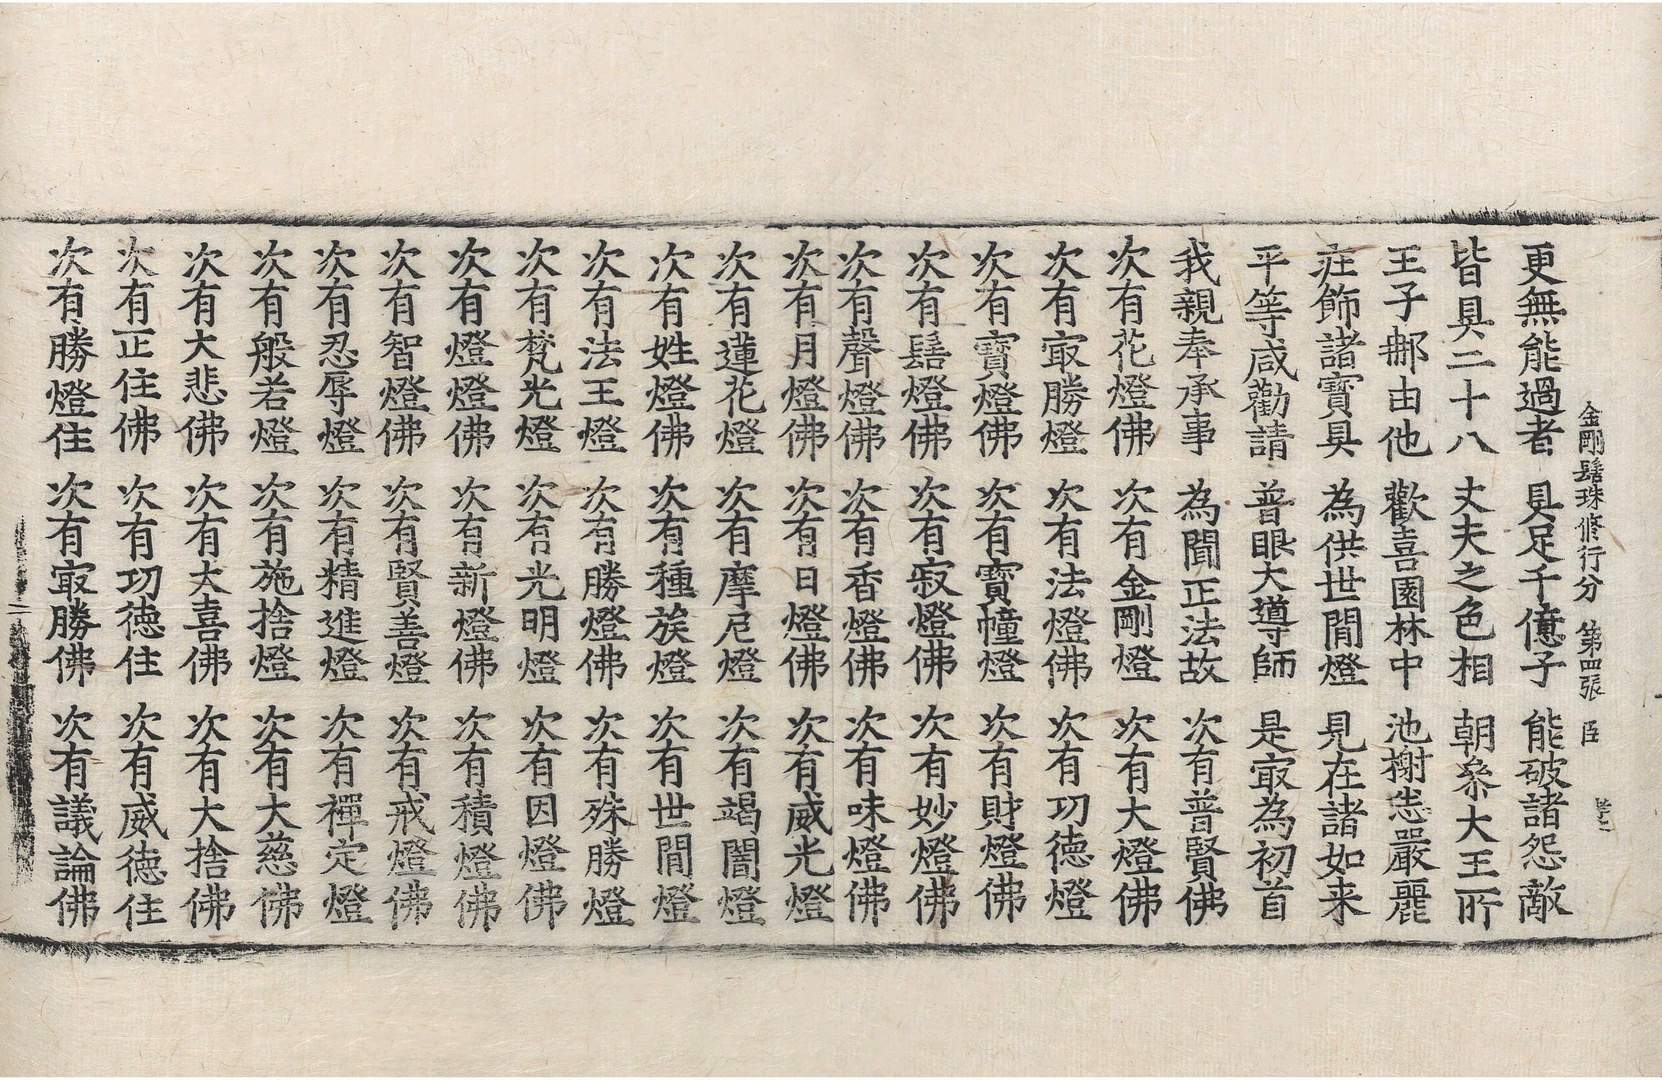 金剛髻珠修行分 第四張 臣
更無能過者 具足千億子 能破諸怨敵
皆具二十八 丈夫之色相 朝叅大王所
王子郍由他 歡喜園林中 池榭悉嚴麗
莊飾諸寶具 為供世閒燈 見在諸如来
平等咸勸請 普眼大導師 是㝡為初首
我親奉承事 為聞正法故 次有普賢佛
次有花燈佛 次有金剛燈 次有大燈佛
次有㝡勝燈 次有法燈佛 次有功德燈
次有寶燈佛 次有寶幢燈 次有財燈佛
次有髻燈佛 次有寂燈佛 次有妙燈佛
次有聲燈佛 次有香燈佛 次有味燈佛
次有月燈佛 次有日燈佛 次有威光燈
次有蓮花燈 次有摩尼燈 次有竭闇燈
次有姓燈佛 次有種族燈 次有世閒燈
次有法王燈 次有勝燈佛 次有殊勝燈
次有梵光燈 次有光明燈 次有因燈佛
次有燈燈佛 次有新燈佛 次有積燈佛
次有智燈佛 次有賢善燈 次有戒燈佛
次有忍辱燈 次有精進燈 次有禪定燈
次有般若燈 次有施捨燈 次有大慈佛
次有大悲佛 次有大喜佛 次有大捨佛
次有正住佛 次有功德住 次有威德住
次有勝燈住 次有㝡勝佛 次有議論佛